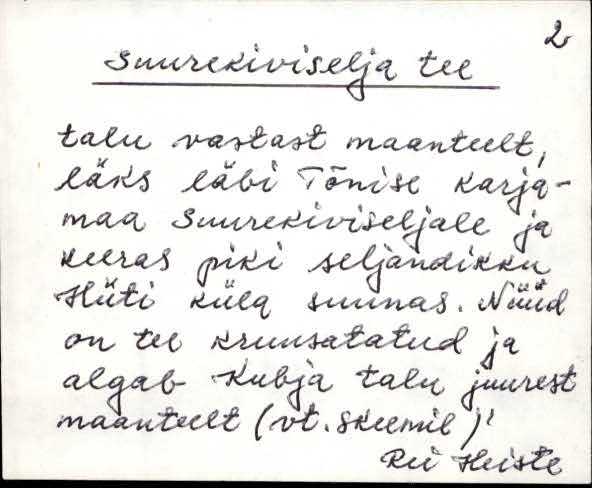 2
Suurekiviselja tee
talu vastast maanteelt,
läks läbi Tõnise karja-
maa Suurekiviseljale ja
keeras piki seljandikku
Hüti küla suunas. Nüüd
on tee kruusatatud ja
algab Kubja talu juurest
maanteelt (vt. skeemil)'
Rii Heiste